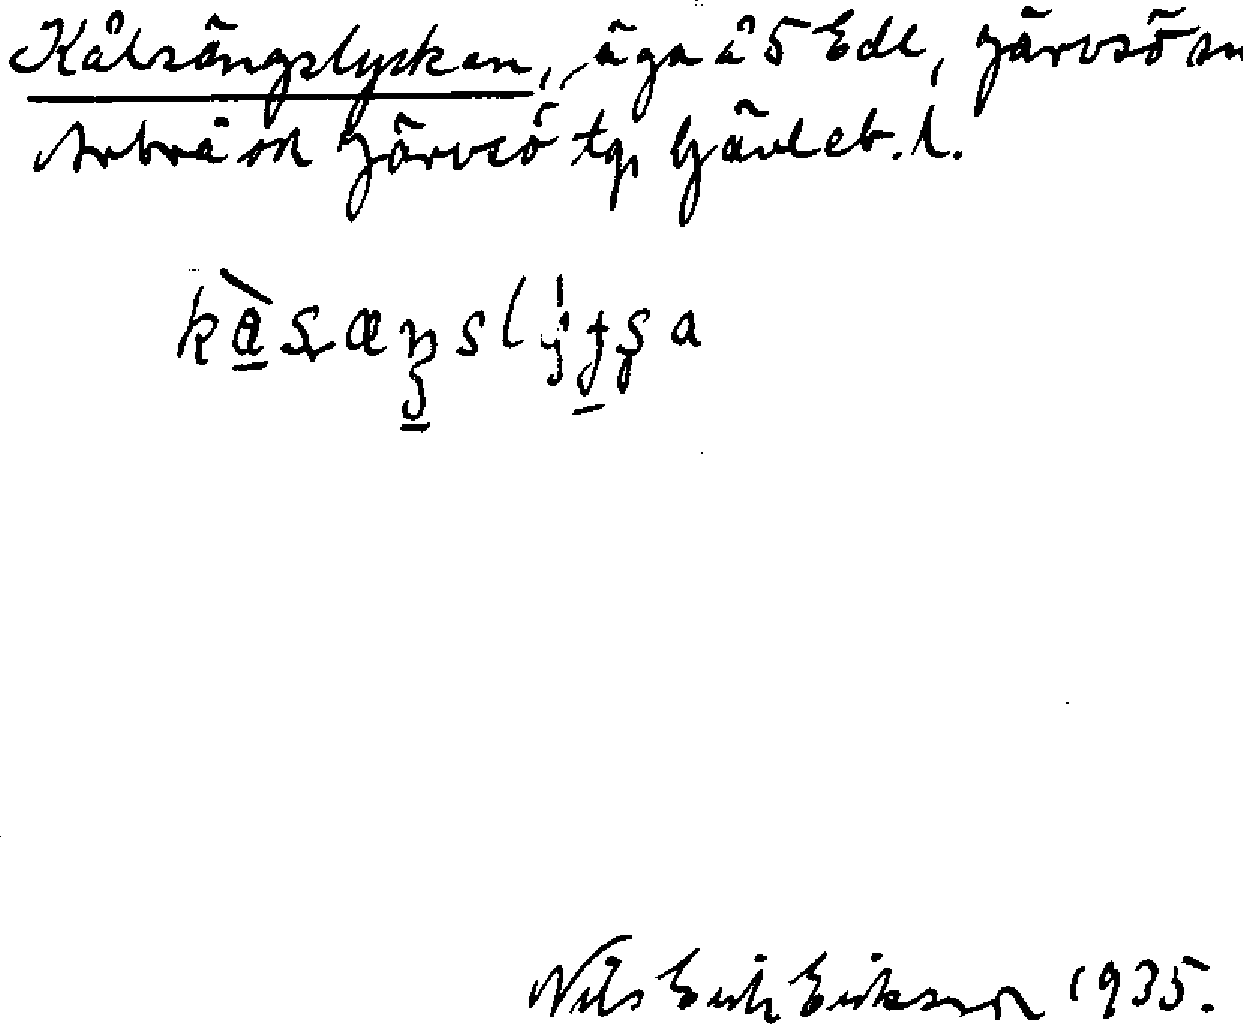 Kålsängslyckan, äga å 5 Edl, Järvsö sn
Arbrå ok Järvsö tg, Gävleb. l.
Nils Erik Eriksson 1935.